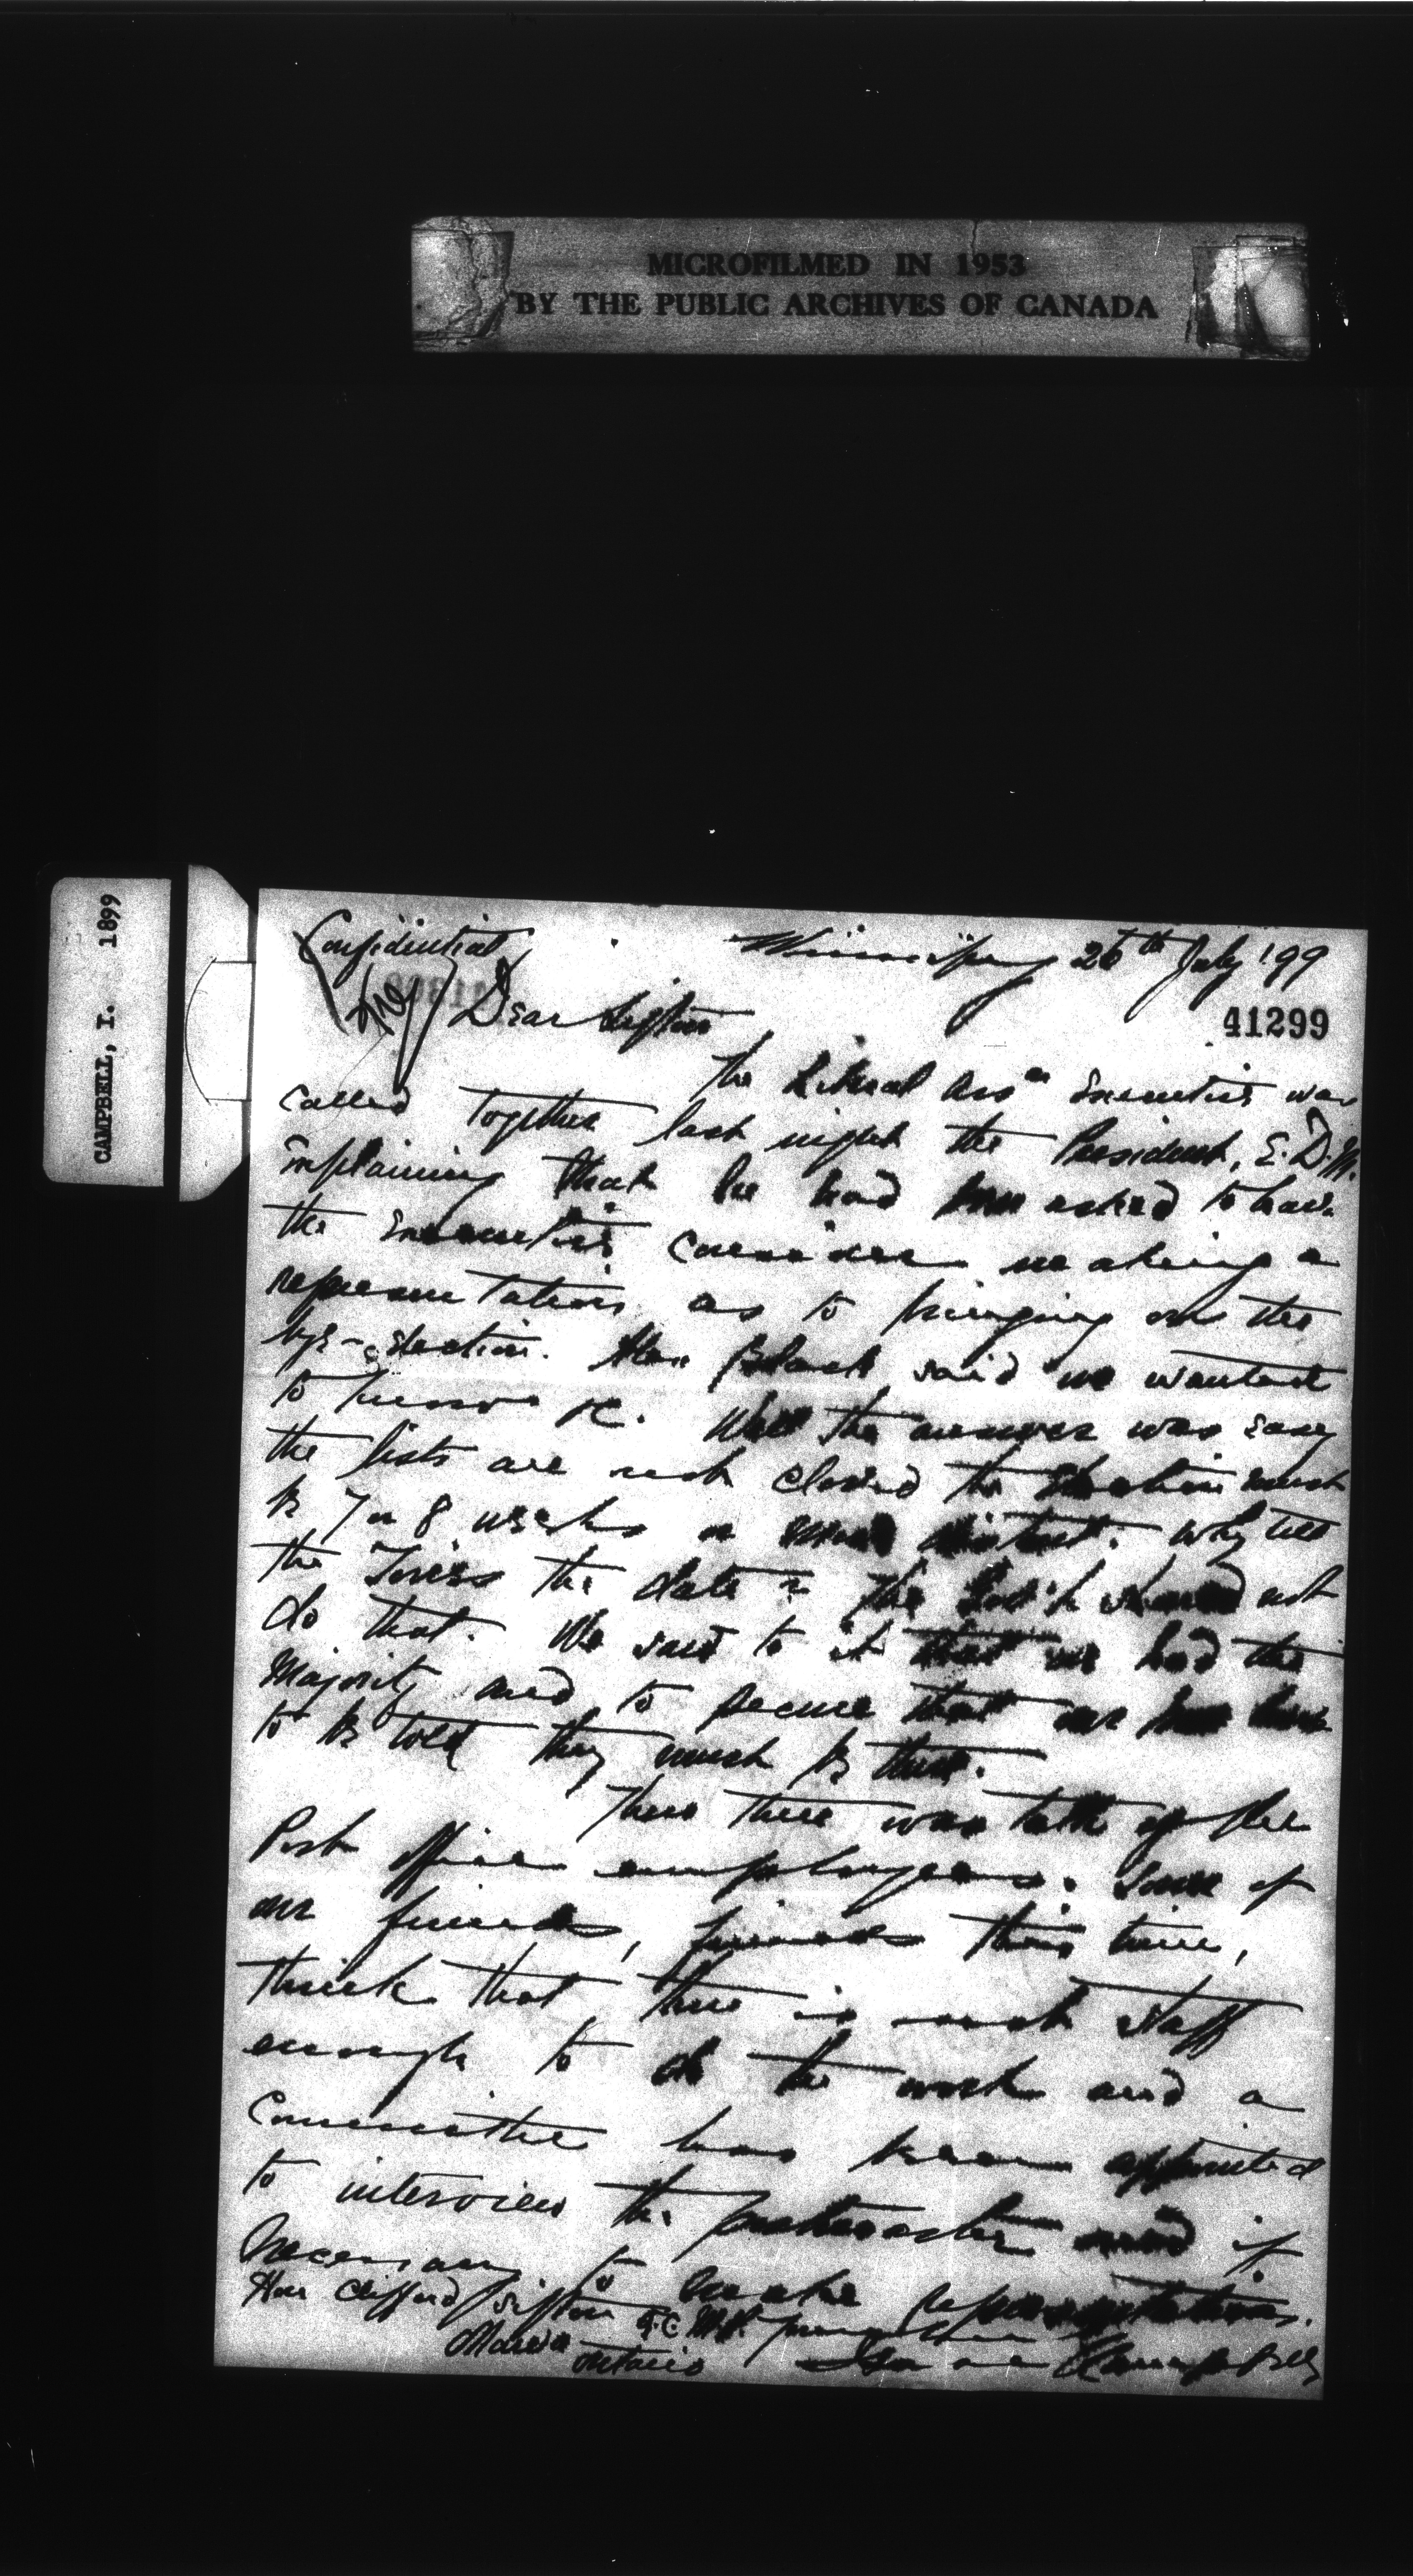 MICROFILMED IN 1953
BY THE PUBLIC ARCHIVES OF CANADA
CAMPBELL, I. 1899
Confidential
Winnipeg 26th July '99
41299
Dear Sifton
The Liberal Assn Executive was
called together last night the President, E. D. M.
explaining that he had been asked to have
the Executive consider making a
representation as to bringing on the
bye-election. Alex Black said we wanted
to know it. Well the answer was easy
the lists are not closed the Election must
be 7 or 8 weeks or more distant. Why tell
the Tories the date? The should not
do that. We said to it that we had the
Majority and to secure that our
to be told they must be there.
Then there was talk of the
Post office employees. Some of
our friends, friends this time,
think that there is not staff
enough to do the work and a
Committee has been appointed
to interview the postmaster and if
necessary to make representations.
Hon Clifford Sifton Q.C. M.P.
Ottawa
Ontario
Isaac Campbell